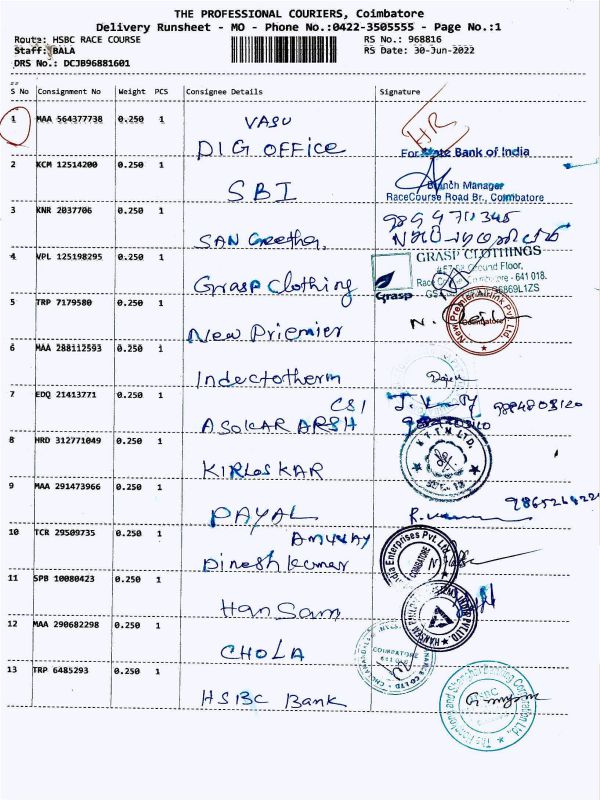 THE PROFESSIONAL COURIERS, Coimbatore
Delivery Runsheet - MO - Phone No.:0422-3505555 - Page No.:1
Route: HSBC RACE COURSE RS No.: 968816
Staff: BALA RS Date: 30-Jun-2022
DRS No.: DCJB96881601
S No Consignment No Weight PCS Consignee Details Signature
1 MAA 564377738 0.250 1 VASU HR
DIG OFFICE For State Bank of India
2 KCM 12514200 0.250 1
SBI Branch Manager
RaceCourse Road Br., Coimbatore
3 KNR 2037706 0.250 1
SAN Geetha.
4 VPL 125198295 0.250 1 GRASP CLOTHINGS
Ground Floor,
641 018.
Grasp Clothing Grasp
5 TRP 7179580 0.250 1
New Priemier New Premier Think Pvt. Ltd. Coimbatore
6 MAA 288112593 0.250 1
Indectotherm
7 EDQ 21413771 0.250 1 CSI
ASOKAR ARSH
8 HRD 312771049 0.250 1
KIRLOSKAR
9 MAA 291473966 0.250 1
PAYAL
10 TCR 29509735 0.250 1 AMWAY
Dinesh kumar Enterprises Pvt. Ltd. COIMBATORE
11 SPB 10080423 0.250 1
HanSam
12 MAA 290682298 0.250 1
CHOLA COIMBATORE
13 TRP 6485293 0.250 1
HSBC Bank The Hongkong and Shanghai Banking Corporation Ltd., HSBC